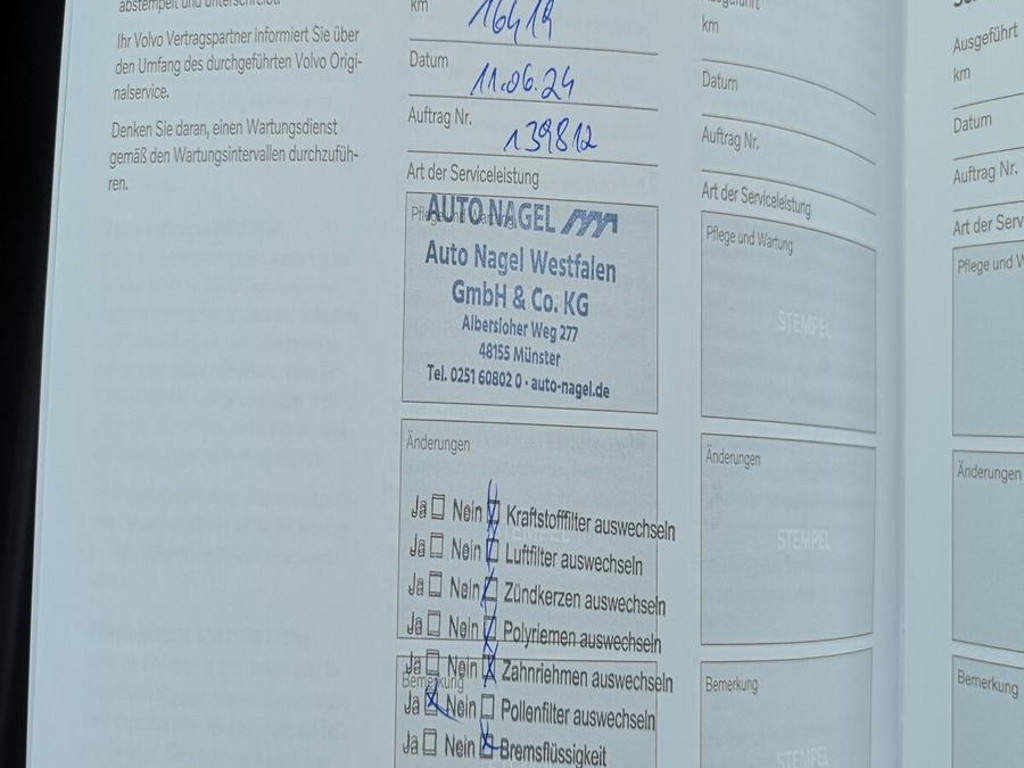 abstempelt und unterschreibt.
Ihr Volvo Vertragspartner informiert Sie über
den Umfang des durchgeführten Volvo Origi-
nalservice.
Denken Sie daran, einen Wartungsdienst
gemäß den Wartungsintervallen durchzufüh-
ren.
km 16419
Datum 11.06.24
Auftrag Nr. 139812
Art der Serviceleistung
Pflege und Wartung
AUTO NAGEL
Auto Nagel Westfalen
GmbH & Co. KG
Albersloher Weg 277
48155 Münster
Tel. 0251 60802 0 · auto-nagel.de
Änderungen
Ja Nein Kraftstofffilter auswechseln
Ja Nein Luftfilter auswechseln
Ja Nein Zündkerzen auswechseln
Ja Nein Polyriemen auswechseln
Ja Nein Zahnriehmen auswechseln
Bemerkung
Ja Nein Pollenfilter auswechseln
Ja Nein Bremsflüssigkeit
km
Datum
Auftrag Nr.
Art der Serviceleistung
Pflege und Wartung
STEMPEL
Änderungen
STEMPEL
Bemerkung
STEMPEL
Ausgeführt
km
Datum
Auftrag Nr.
Art der Serv
Pflege und W
Änderungen
Bemerkung